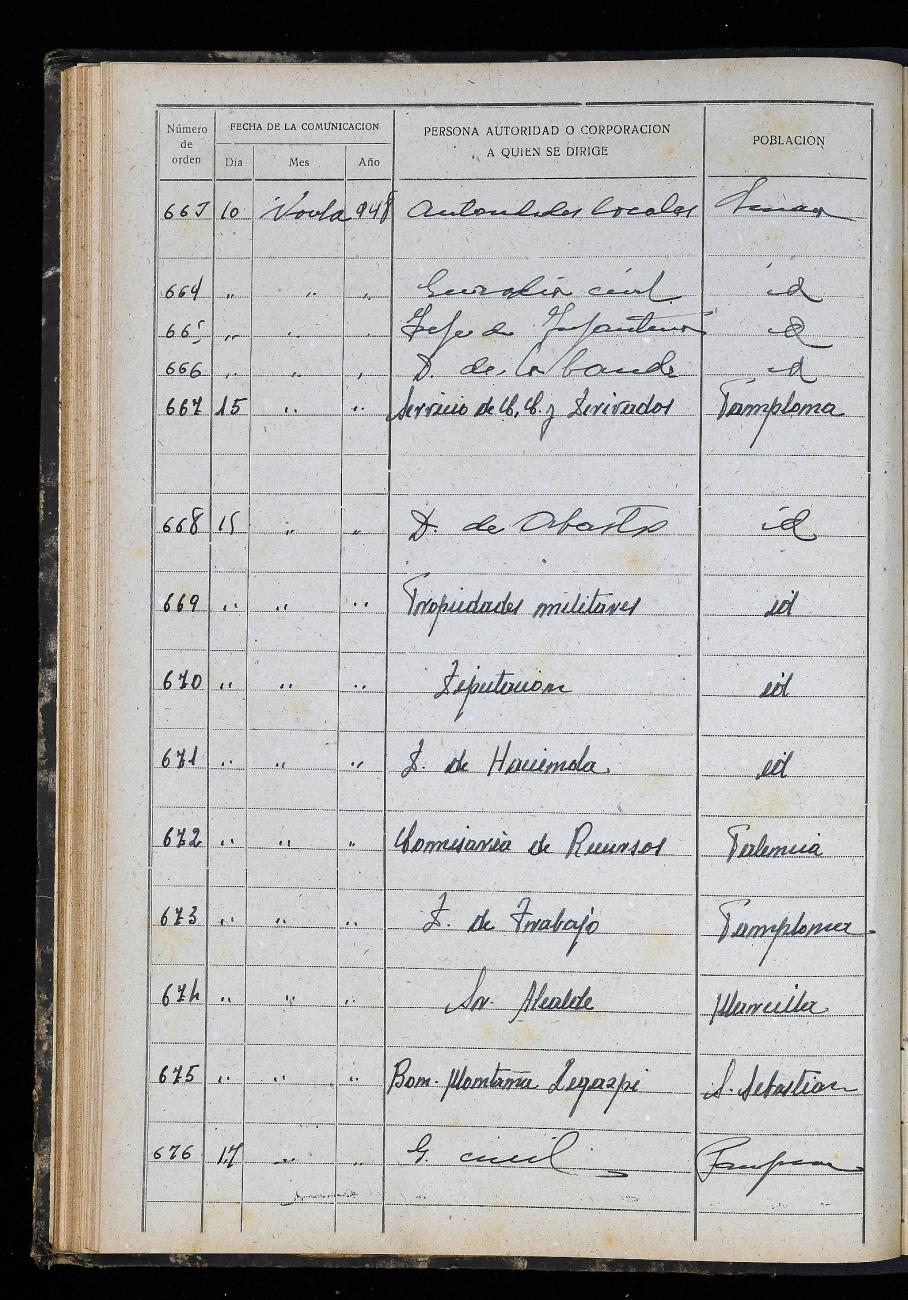 Número de orden FECHA DE LA COMUNICACION PERSONA AUTORIDAD O CORPORACION A QUIEN SE DIRIGE POBLACIÓN
Dia Mes Año
663 10 948 Autoridades locales
664 " " " Guardia civil id
665 " " " Jefe de id
666 " " " D. de la banda id
667 15 " " Servicio de C. C. y Derivados Pamplona
668 15 " " D. de Abastos id
669 " " " Propiedades militares id
670 " " " Diputacion id
671 " " " D. de Hacienda id
672 " " " Comisaria de Recursos Palencia
673 " " " D. de Trabajo Pamplona
674 " " " Sr. Alcalde Marcilla
675 " " " Bon. Montaña Legazpi S. Sebastian
676 17 " " G. civil Pamplona